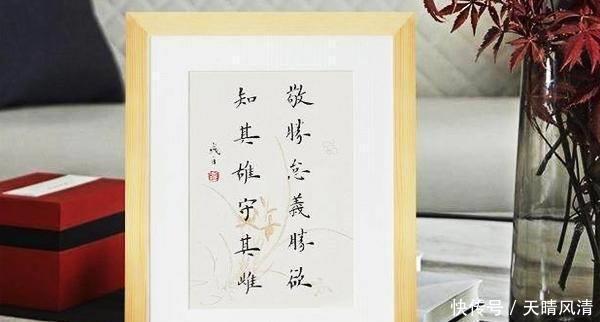 敬勝怠義勝欲
知其雄守其雌
快传号 / 天晴风清